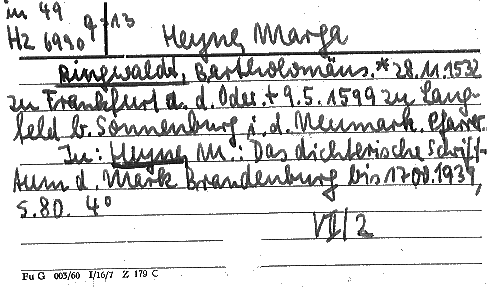 in 49
Hz 6990 9-13
Heyne, Marga
Ringwaldt, Bartholomäus. *28.11.1532
zu Frankfurt a. d. Oder. + 9.5.1599 zu Lang-
feld b. Sonnenburg i. d. Neumark. Pfarrer.
In: Heyne, M.: Das dichterische Schrift-
tum d. Mark Brandenburg bis 1700. 1939,
S. 80. 4°
VII/2
Pu G 003/60 I/16/7 Z 179 C